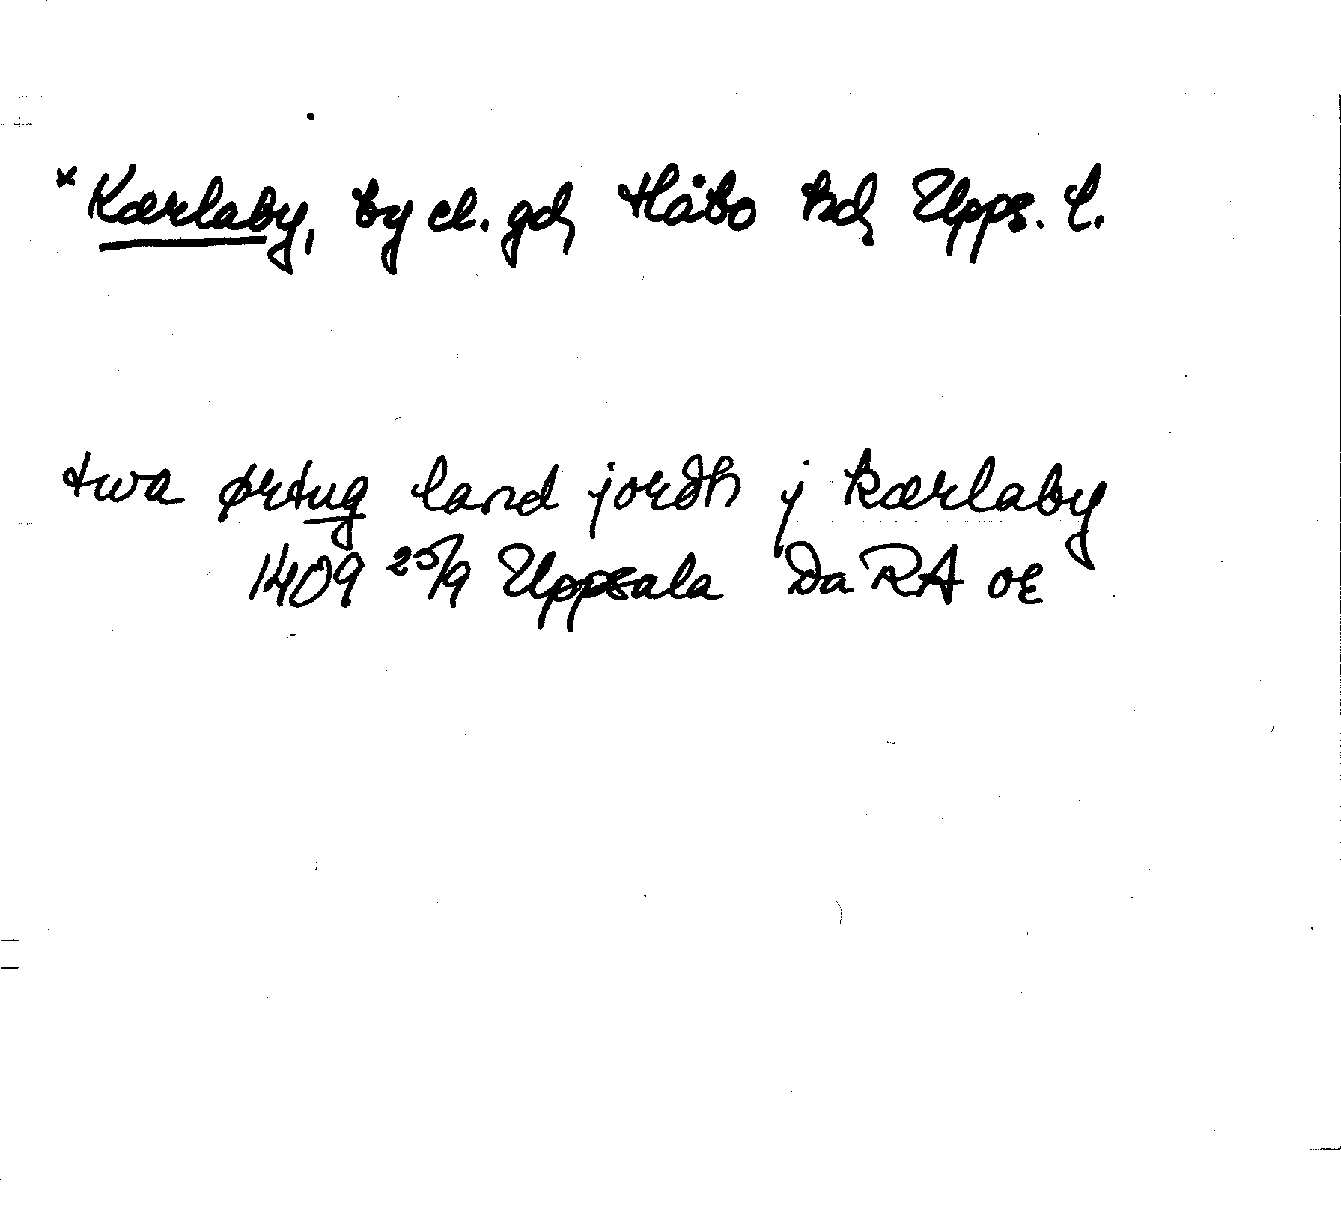 *Kærlaby, by el. gd, Håbo hd, Upps. l.
twa ørtug land jordh j kærlaby
1409 25/9 Uppsala Da RA oε